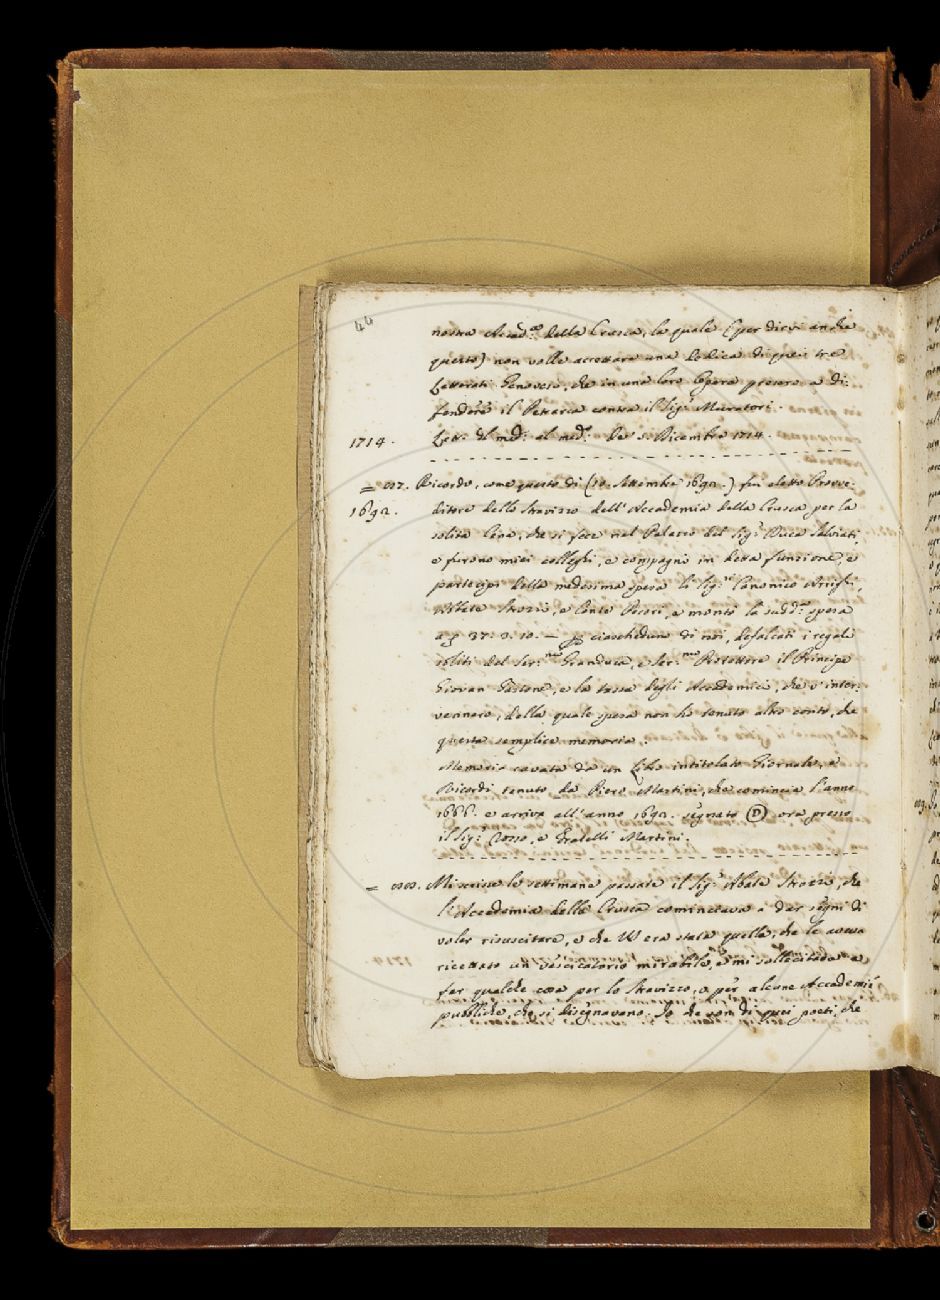 44
nostra Accad.ª della Crusca, la quale (per dirvi anche
questo) non volle accettare una Dedica di quei tre
Letterati Genovesi, che in una loro Opera presero a di:
fendere il Petrarca contra il Sig.r Muratori.
1714. Lett. del med.º al med.º De' 5. Dicembre 1714.
= Ricordo, come questo dì (12. Settembre 1692.) fui eletto Provve:
1692. ditore dello Stravizzo dell'Accademia della Crusca per la
solita Cena, che si fece nel Palazzo del Sig.r Duca Salviati,
e furono miei colleghi, e compagni in detta funzione, e
partecipi della medesima spesa li Sig.ri Canonico Arrighi,
Abate Strozzi, e Conte Pecori, e montò la sudd.ª spesa
a 37. 3. 10. — ciascheduno di noi, defalcati i regali
soliti del Ser.mo Granduca, e Ser.mo Protettore il Principe
Giovan Gastone, e la tassa degli Accademici, che v'inter:
vennero, della quale spesa non ho tenuto altro conto, che
questa semplice memoria.
Memoria cavata da un Libro intitolato Giornale, e
Ricordi tenuto da Piero Martini, che comincia l'anno
1666. e arriva all'anno 1692. segnato D ora presso
il Sig.r Rosso, e Fratelli Martini.
= Mi scrisse le settimane passate il Sig.r Abate Strozzi, che
l'Accademia della Crusca cominciava a dar segni di
voler risuscitare, e che W era stata quella, che le aveva
ricettato un vescicatorio mirabile, e mi sollecitava a
far qualche cosa per lo Stravizzo, o per alcune Accademie
pubbliche, che si disegnavano. Io che son di quei poeti, che